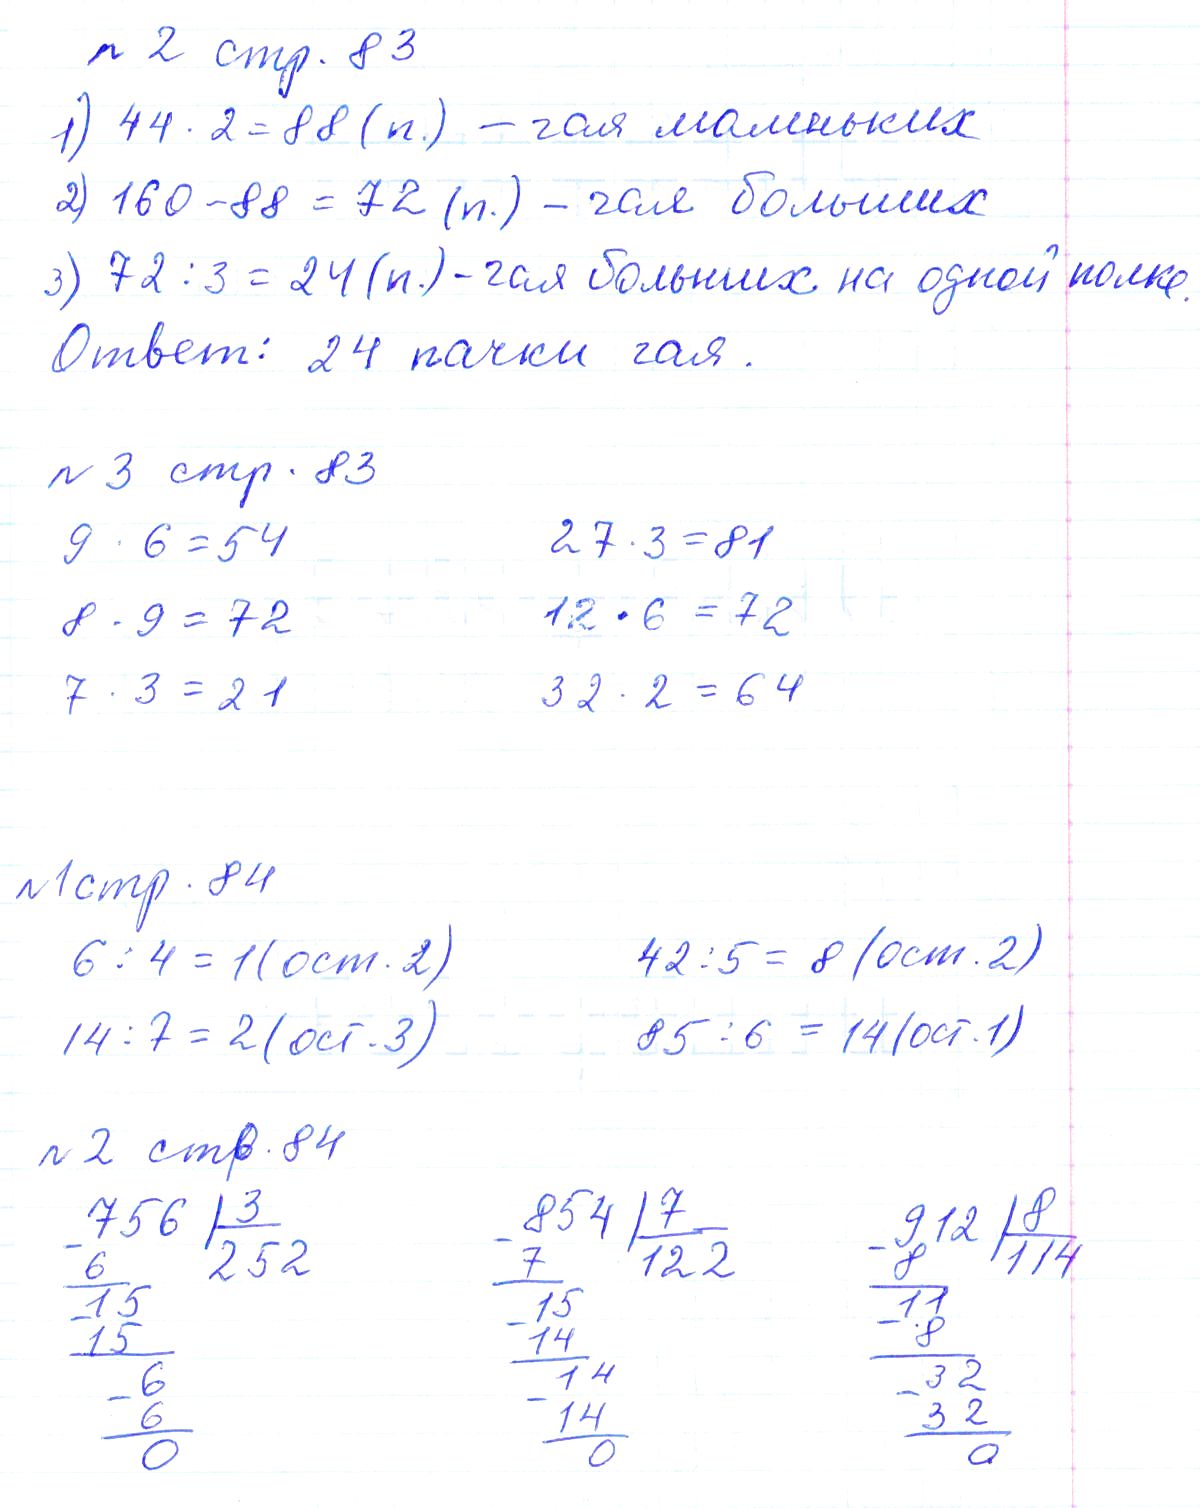 № 2 стр. 83
1) 44 · 2 = 88 (п.) – чая маленьких
2) 160 - 88 = 72 (п.) – чая больших
3) 72 : 3 = 24 (п.) - чая больших на одной полке.
Ответ: 24 пачки чая.
№ 3 стр. 83
9 · 6 = 54 27 · 3 = 81
8 · 9 = 72 12 · 6 = 72
7 · 3 = 21 32 · 2 = 64
№ 1 стр. 84
6 : 4 = 1 (ост. 2) 42 : 5 = 8 (ост. 2)
14 : 7 = 2 (ост. 3) 85 : 6 = 14 (ост. 1)
№ 2 стр. 84
- 756 | 3 - 854 | 7 - 912 | 8
6 252 7 122 8 114
- 15 - 15 - 11
15 14 8
- 6 - 14 - 32
6 14 32
0 0 0